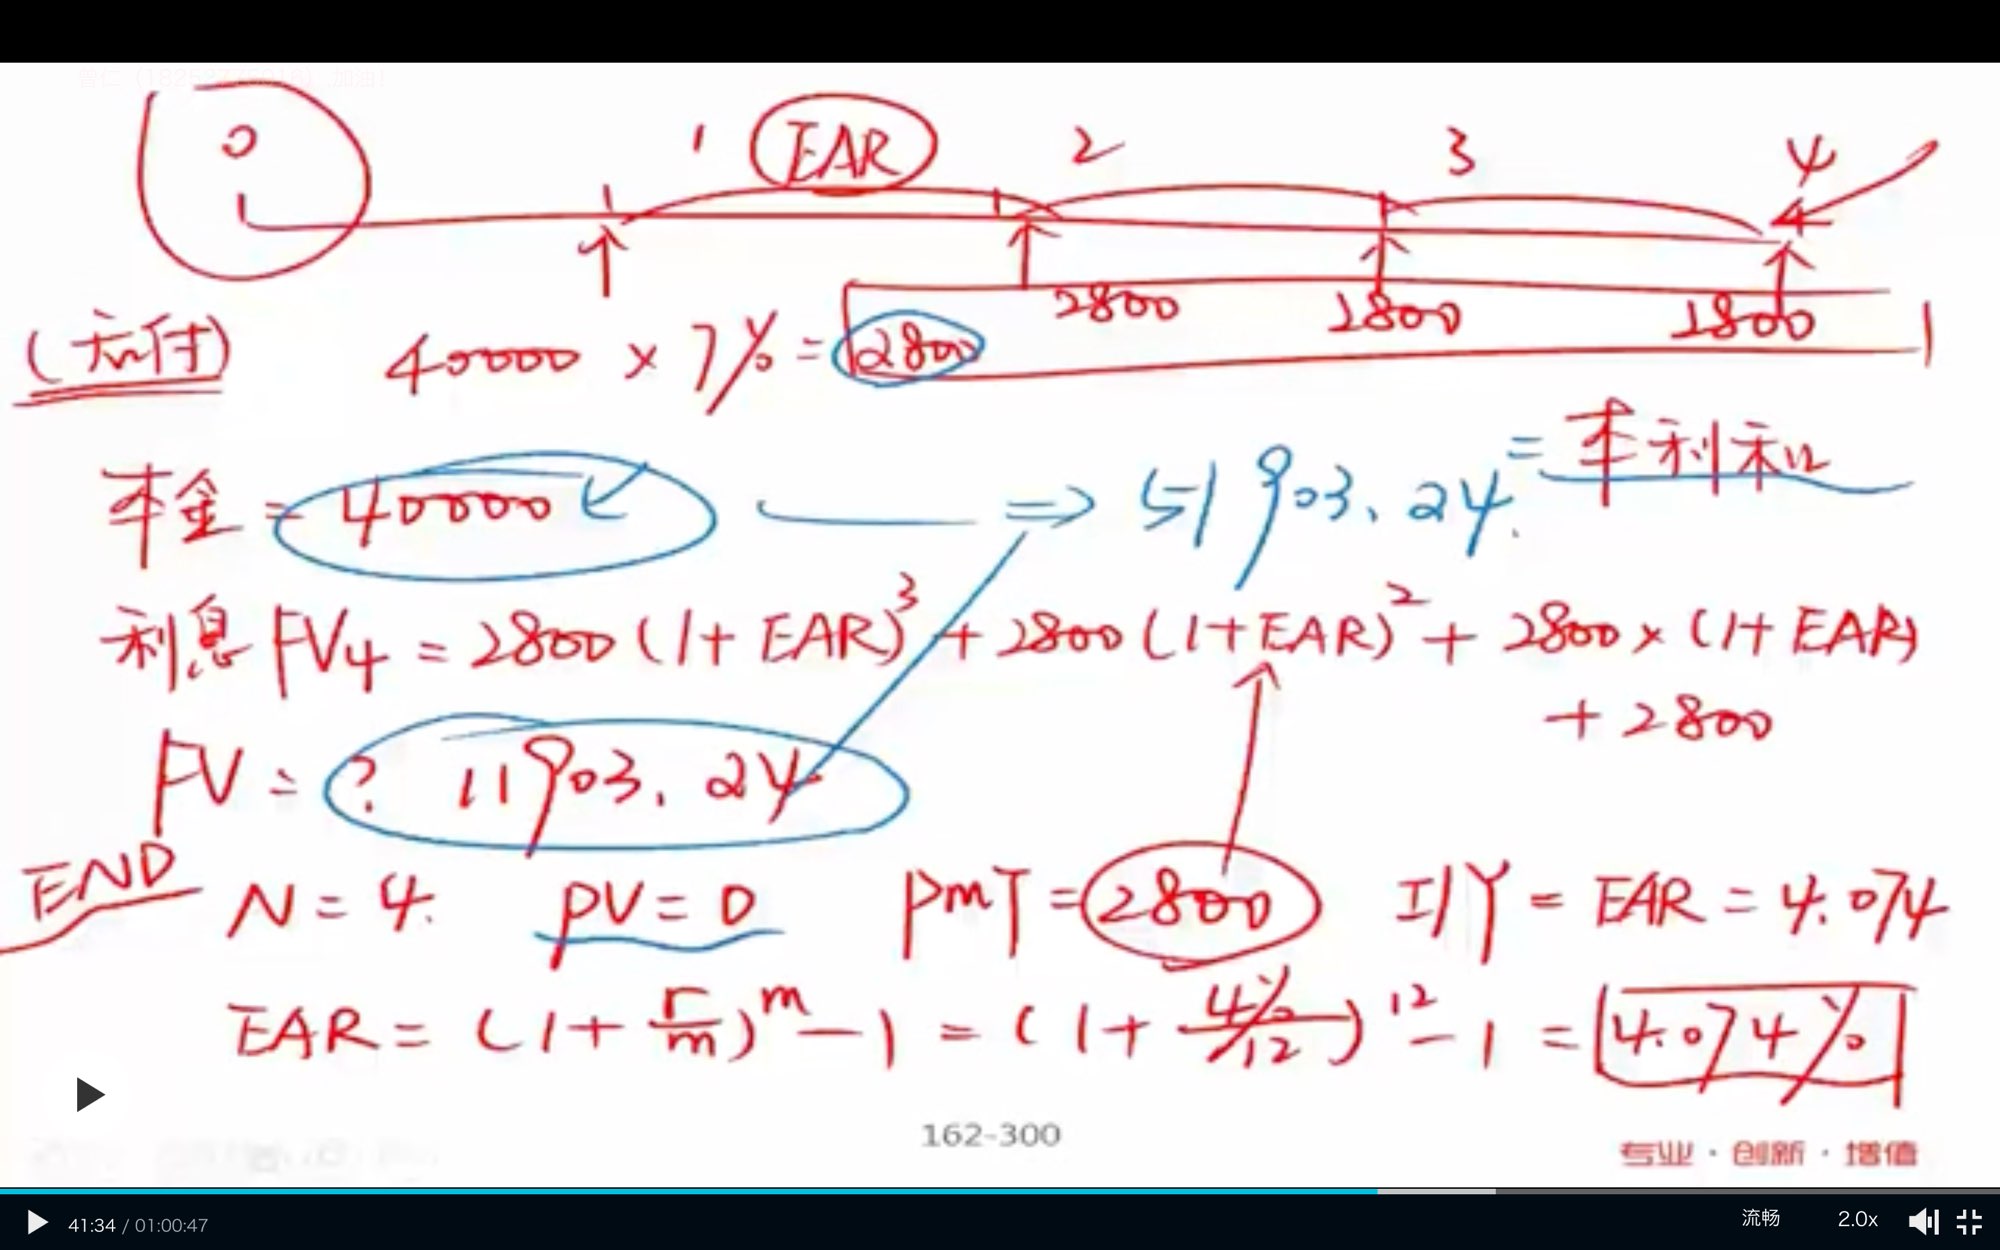 0 1 EAR 2 3 4
2800 2800 2800
(后付) 40000 × 7% = 2800
本金 = 40000 ⇒ 51903.24 = 本利和
利息 FV4 = 2800 (1+ EAR)³ + 2800 (1+EAR)² + 2800 × (1+ EAR)
+ 2800
FV = ? 11903.24
END N = 4. PV = 0 PMT = 2800 I/Y = EAR = 4.074
EAR = (1+ r/m)^m - 1 = (1+ 4%/12)^12 - 1 = 4.074%
162-300
专业·创新·增值
41:34 / 01:00:47 流畅 2.0x